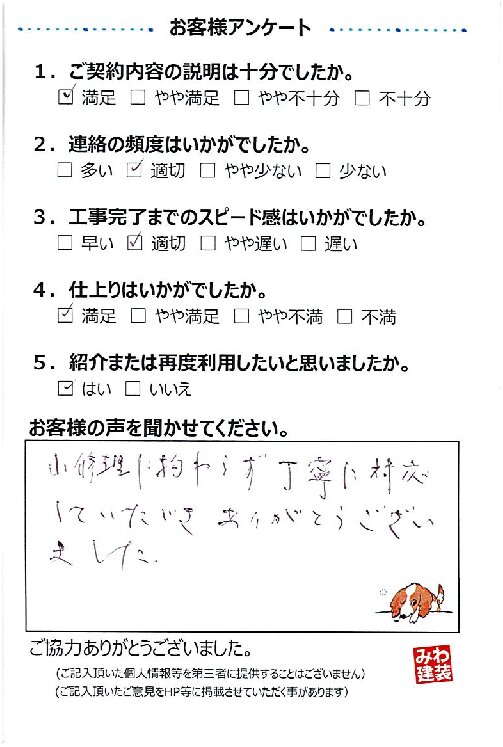 お客様アンケート
1．ご契約内容の説明は十分でしたか。
☑ 満足 □ やや満足 □ やや不十分 □ 不十分
2．連絡の頻度はいかがでしたか。
□ 多い ☑ 適切 □ やや少ない □ 少ない
3．工事完了までのスピード感はいかがでしたか。
□ 早い ☑ 適切 □ やや遅い □ 遅い
4．仕上りはいかがでしたか。
☑ 満足 □ やや満足 □ やや不満 □ 不満
5．紹介または再度利用したいと思いましたか。
☑ はい □ いいえ
お客様の声を聞かせてください。
小修理に拘わらず丁寧に対応
していただきありがとうござい
ました.
ご協力ありがとうございました。
(ご記入頂いた個人情報等を第三者に提供することはございません)
(ご記入頂いたご意見をHP等に掲載させていただく事があります)
みわ
建装